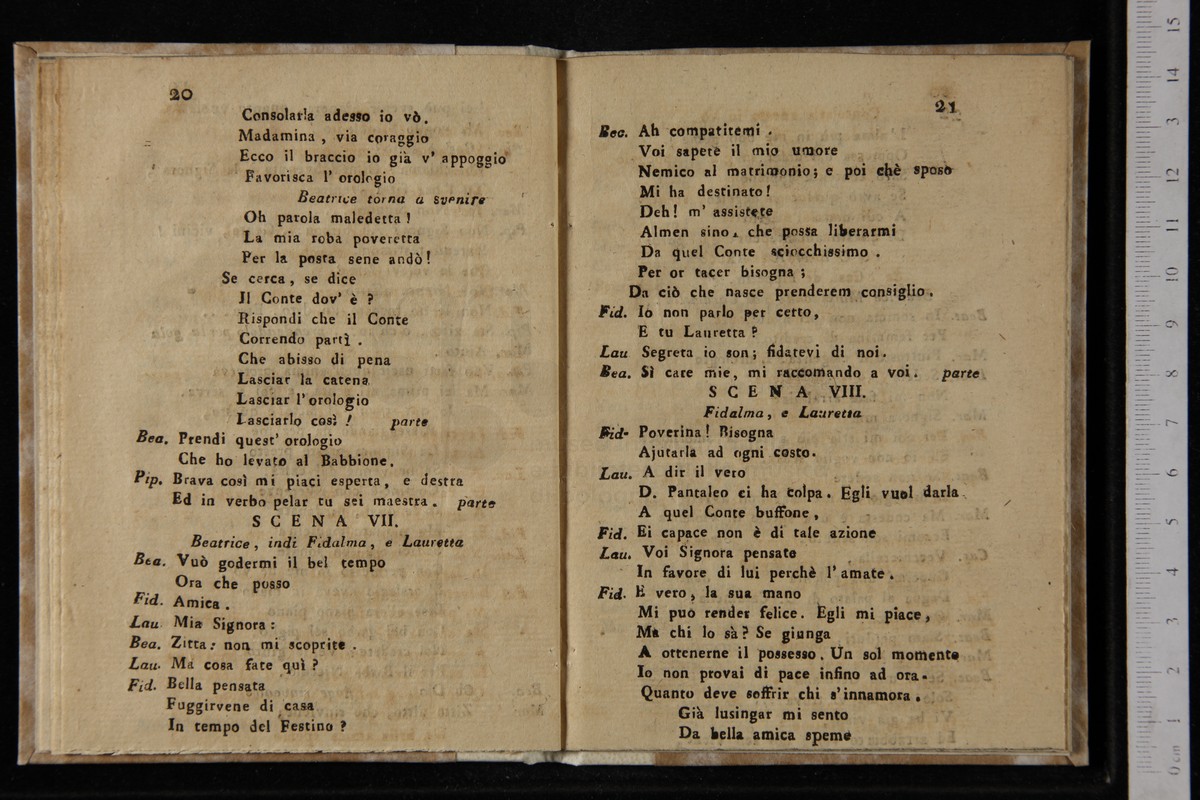 20
Consolarla adesso io vò.
Madamina, via coraggio
Ecco il braccio io già v' appoggio
Favorisca l' orologio
Beatrice torna a svenire
Oh parola maledetta!
La mia roba poveretta
Per la posta sene andò!
Se cerca, se dice
Il Conte dov' è?
Rispondi che il Conte
Correndo partì.
Che abisso di pena
Lasciar la catena
Lasciar l'orologio
Lasciarlo così! parte
Bea. Prendi quest' orologio
Che ho levato al Babbione.
Pip. Brava così mi piaci esperta, e destra
Ed in verbo pelar tu sei maestra. parte
SCENA VII.
Beatrice, indi Fidalma, e Lauretta
Bea. Vuò godermi il bel tempo
Ora che posso
Fid. Amica.
Lau Mia Signora:
Bea. Zitta: non mi scoprite.
Lau. Ma cosa fate quì?
Fid. Bella pensata
Fuggirvene di casa
In tempo del Festino?
21
Bec. Ah compatitemi.
Voi sapete il mio umore
Nemico al matrimonio; e poi chè sposo
Mi ha destinato!
Deh! m' assistete
Almen sino, che possa liberarmi
Da quel Conte sciocchissimo.
Per or tacer bisogna;
Da ciò che nasce prenderem consiglio.
Fid. Io non parlo per certo,
E tu Lauretta?
Lau Segreta io son; fidatevi di noi.
Bea. Sì care mie, mi raccomando a voi. parte
SCENA VIII.
Fidalma, e Lauretta
Fid. Poverina! Bisogna
Ajutarla ad ogni costo.
Lau. A dir il vero
D. Pantaleo ci ha colpa. Egli vuol darla
A quel Conte buffone,
Fid. Ei capace non è di tale azione
Lau. Voi Signora pensate
In favore di lui perchè l'amate.
Fid. E vero, la sua mano
Mi può render felice. Egli mi piace,
Ma chi lo sà? Se giunga
A ottenerne il possesso. Un sol momento
Io non provai di pace infino ad ora.
Quanto deve soffrir chi s'innamora.
Già lusingar mi sento
Da bella amica speme